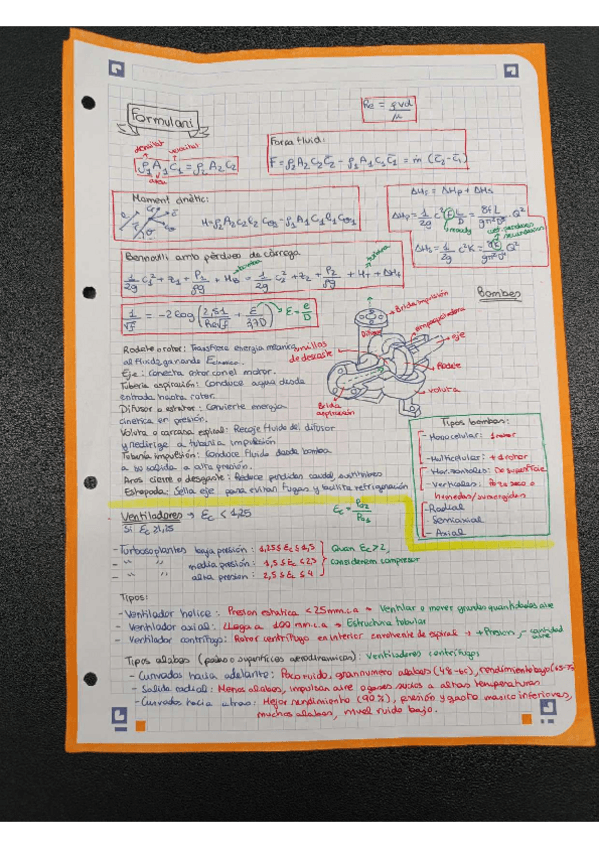 Formulari
Re = ρvd / μ
densitat velocitat
ρ₁A₁C₁ = ρ₂A₂C₂
àrea
Força fluid:
F = ρ₂A₂C₂C̄₂ - ρ₁A₁C₁C̄₁ = ṁ (C̄₂-C̄₁)
Moment cinètic:
ΔHf = ΔHp + ΔHs
Bernoulli amb pèrdues de càrrega
1/2g C₁² + z₁ + P₁/ρg + HB = 1/2g C₂² + z₂ + P₂/ρg + HT + ΔHf
1/√f = -2log (2,51/Re√f + E/3,7D) E = e/D
Bombes
Brida impulsión
empaquetadora
eje
Rodete
voluta
Brida
aspiración
anillos
de desgaste
Rodete o rotor: Transfiere energia mecánica
al fluido, ganando
Eje: conecta rotor con el motor.
Tuberia aspiración: Conduce agua desde
entrada hasta rotor.
Difusor o estator: Convierte energia
cinetica en presión.
Voluta o carcasa espiral: Recoje fluido del difusor
y redirige a tuberia impulsión
Tuberia impulsión: Conduce fluido desde bomba
a su salida a alta presión.
Aros cierre o desgaste: Reduce perdidas caudal,
Estopada: Sella eje para evitar fugas y facilita refrigeración
Tipos bombas:
- Monocelular: 1 rotor
- Multicelular: + d 1 rotor
- Horizontales: De superficie
- Verticales: Pozo seco o
humedas/sumergidas
- Radial
- Semiaxial
- Axial
Ventiladores → Ec < 1,25
Si Ec ≥ 1,25
Ec = P02/P01
- Turbosoplantes baja presión: 1,25 ≤ Ec ≤ 1,5
- " " media presión: 1,5 ≤ Ec ≤ 2,5
- " " alta presion: 2,5 ≤ Ec ≤ 4
Quan Ec > 2,
considerem compresor
Tipos:
- Ventilador helice: Presion estatica < 25mm.c.a → Ventilar o mover grandes quantidades aire
- Ventilador axial: Llega a 100 mm.c.a → Estructura tubular
- Ventilador centrifugo: Rotor centrifugo en interior envolvente de espiral → + Presion, - cantidad
aire
Tipos alabes (palas o superficies aerodinamicas): Ventiladores centrifugos
- Curvados hacia adelante: Poco ruido, gran numero alabes (48-65), rendimiento bajo (65-75
- Salida radial: Menos alabes, impulsan aire o gases sucios a altas temperaturas.
- Curvados hacia atras: Mejor rendimiento (90%), presión y gasto masico inferiores,
muchos alabes, nivel ruido bajo.